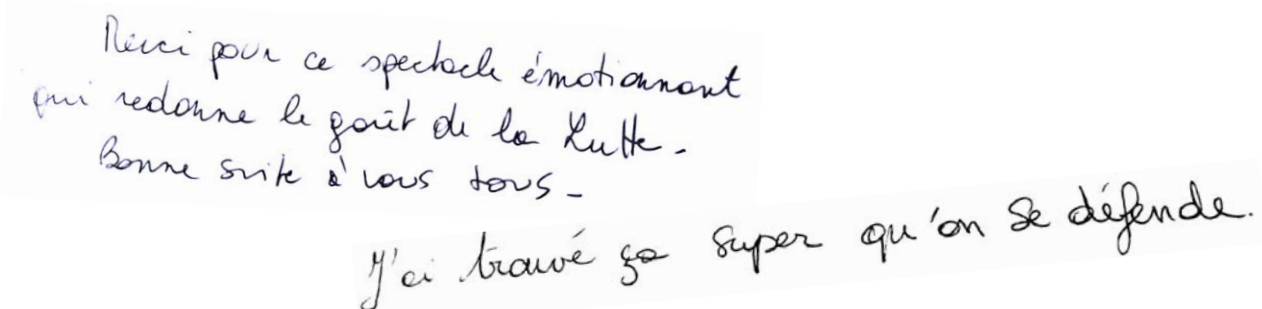 Merci pour ce spectacle émotionnant
qui redonne le goût de la Lutte -
Bonne suite à vous tous -
J'ai trouvé ça super qu'on se défende.